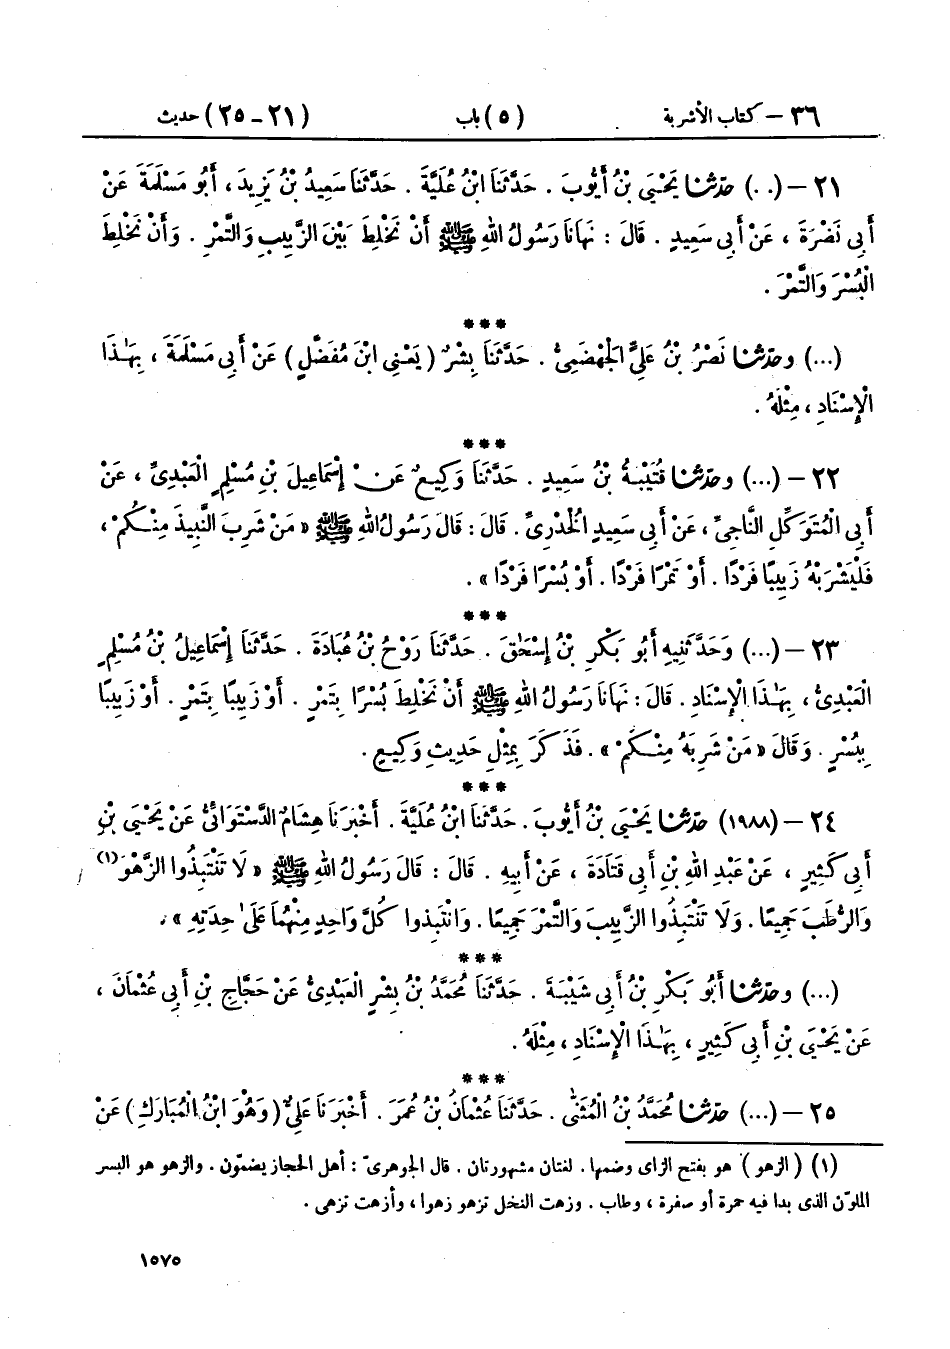 ٣٦ – كتاب الأشربة (٥) باب (٢١-٢٥) حديث
٢١ – (..) حدّثنا يَحْيَىٰ بْنُ أَيُّوبَ . حَدَّثَنَا ابْنُ عُلَيَّةَ . حَدَّثَنَا سَعِيدُ بْنُ يَزِيدَ ، أَبُو مَسْلَمَةَ عَنْ
أَبِي نَضْرَةَ ، عَنْ أَبِي سَعِيدٍ . قَالَ : نَهَانَا رَسُولُ اللهِ ﷺ أَنْ نَخْلِطَ بَيْنَ الزَّبِيبِ وَالتَّمْرِ . وَأَنْ نَخْلِطَ
الْبُسْرَ وَالتَّمْرَ .
***
(...) وحدّثنا نَصْرُ بْنُ عَلِيٍّ الْجَهْضَمِيُّ . حَدَّثَنَا بِشْرٌ ( يَعْنِي ابْنَ مُفَضَّلٍ ) عَنْ أَبِي مَسْلَمَةَ ، بِهَـٰذَا
الْإِسْنَادِ ، مِثْلَهُ .
***
٢٢ – (...) وحدّثنا قُتَيْبَةُ بْنُ سَعِيدٍ . حَدَّثَنَا وَكِيعٌ عَنْ إِسْمَاعِيلَ بْنِ مُسْلِمٍ الْعَبْدِيِّ ، عَنْ
أَبِي الْمُتَوَكِّلِ النَّاجِيِّ ، عَنْ أَبِي سَعِيدٍ الْخُدْرِيِّ . قَالَ : قَالَ رَسُولُ اللهِ ﷺ « مَنْ شَرِبَ النَّبِيذَ مِنْكُمْ ،
فَلْيَشْرَبْهُ زَبِيبًا فَرْدًا . أَوْ تَمْرًا فَرْدًا . أَوْ بُسْرًا فَرْدًا » .
***
٢٣ – (...) وَحَدَّثَنِيهِ أَبُو بَكْرِ بْنُ إِسْحَٰقَ . حَدَّثَنَا رَوْحُ بْنُ عُبَادَةَ . حَدَّثَنَا إِسْمَاعِيلُ بْنُ مُسْلِمٍ
الْعَبْدِيُّ ، بِهَـٰذَا الْإِسْنَادِ . قَالَ : نَهَانَا رَسُولُ اللهِ ﷺ أَنْ نَخْلِطَ بُسْرًا بِتَمْرٍ . أَوْ زَبِيبًا بِتَمْرٍ . أَوْ زَبِيبًا
بِبُسْرٍ . وَقَالَ « مَنْ شَرِبَهُ مِنْكُمْ » . فَذَكَرَ بِمِثْلِ حَدِيثِ وَكِيعٍ .
***
٢٤ – (١٩٨٨) حدّثنا يَحْيَىٰ بْنُ أَيُّوبَ . حَدَّثَنَا ابْنُ عُلَيَّةَ . أَخْبَرَنَا هِشَامٌ الدَّسْتَوَائِيُّ عَنْ يَحْيَىٰ بْنِ
أَبِي كَثِيرٍ ، عَنْ عَبْدِ اللهِ بْنِ أَبِي قَتَادَةَ ، عَنْ أَبِيهِ . قَالَ : قَالَ رَسُولُ اللهِ ﷺ « لَا تَنْتَبِذُوا الزَّهْوَ(١)
وَالرُّطَبَ جَمِيعًا . وَلَا تَنْتَبِذُوا الزَّبِيبَ وَالتَّمْرَ جَمِيعًا . وَانْتَبِذُوا كُلَّ وَاحِدٍ مِنْهُمَا عَلَىٰ حِدَتِهِ » .
***
(...) وحدّثنا أَبُو بَكْرِ بْنُ أَبِي شَيْبَةَ . حَدَّثَنَا مُحَمَّدُ بْنُ بِشْرٍ الْعَبْدِيُّ عَنْ حَجَّاجِ بْنِ أَبِي عُثْمَانَ ،
عَنْ يَحْيَىٰ بْنِ أَبِي كَثِيرٍ ، بِهَـٰذَا الْإِسْنَادِ ، مِثْلَهُ .
***
٢٥ – (...) حدّثنا مُحَمَّدُ بْنُ الْمُثَنَّىٰ . حَدَّثَنَا عُثْمَانُ بْنُ عُمَرَ . أَخْبَرَنَا عَلِيٌّ ( وَهُوَ ابْنُ الْمُبَارَكِ ) عَنْ
(١) ( الزهو ) هو بفتح الزاى وضمها . لغتان مشهورتان . قال الجوهرىّ : أهل الحجاز يضمّون . والزهو هو البسر
الملوّن الذى بدا فيه حمرة أو صفرة ، وطاب . وزهت النخل تزهو زهوا ، وأزهت تزهى .
١٥٧٥